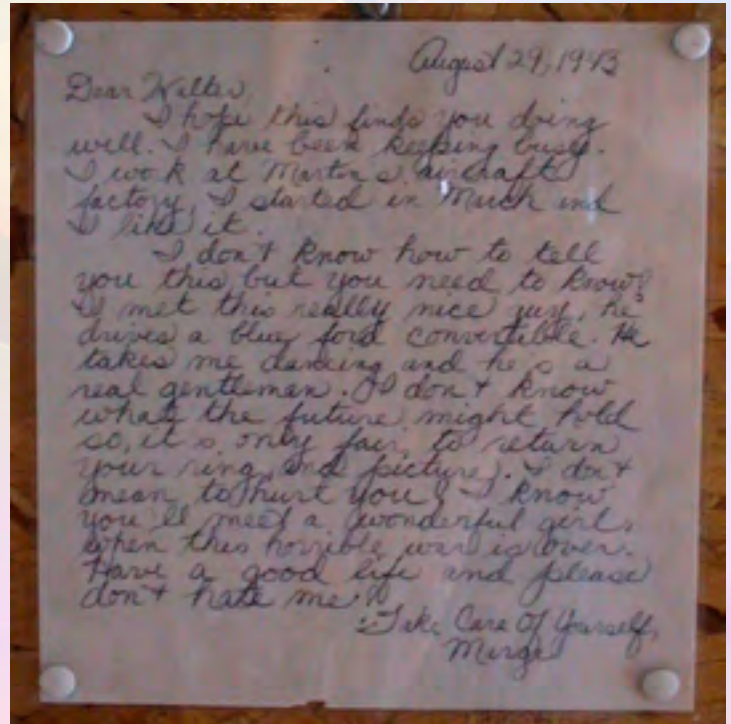 August 29, 1943
Dear Walter,
I hope this finds you doing
well. I have been keeping busy.
I work at Martin's aircraft
factory, I started in March and
I like it.
I don't know how to tell
you this, but you need to know.
I met this really nice guy, he
drives a blue ford convertible. He
takes me dancing and he's a
real gentleman. I don't know
what the future might hold
so, it's only fair, to return
your ring, and picture. I don't
mean to hurt you. I know
you'll meet a wonderful girl,
when this horrible war is over.
Have a good life and please
don't hate me.
Take Care Of Yourself,
Marge